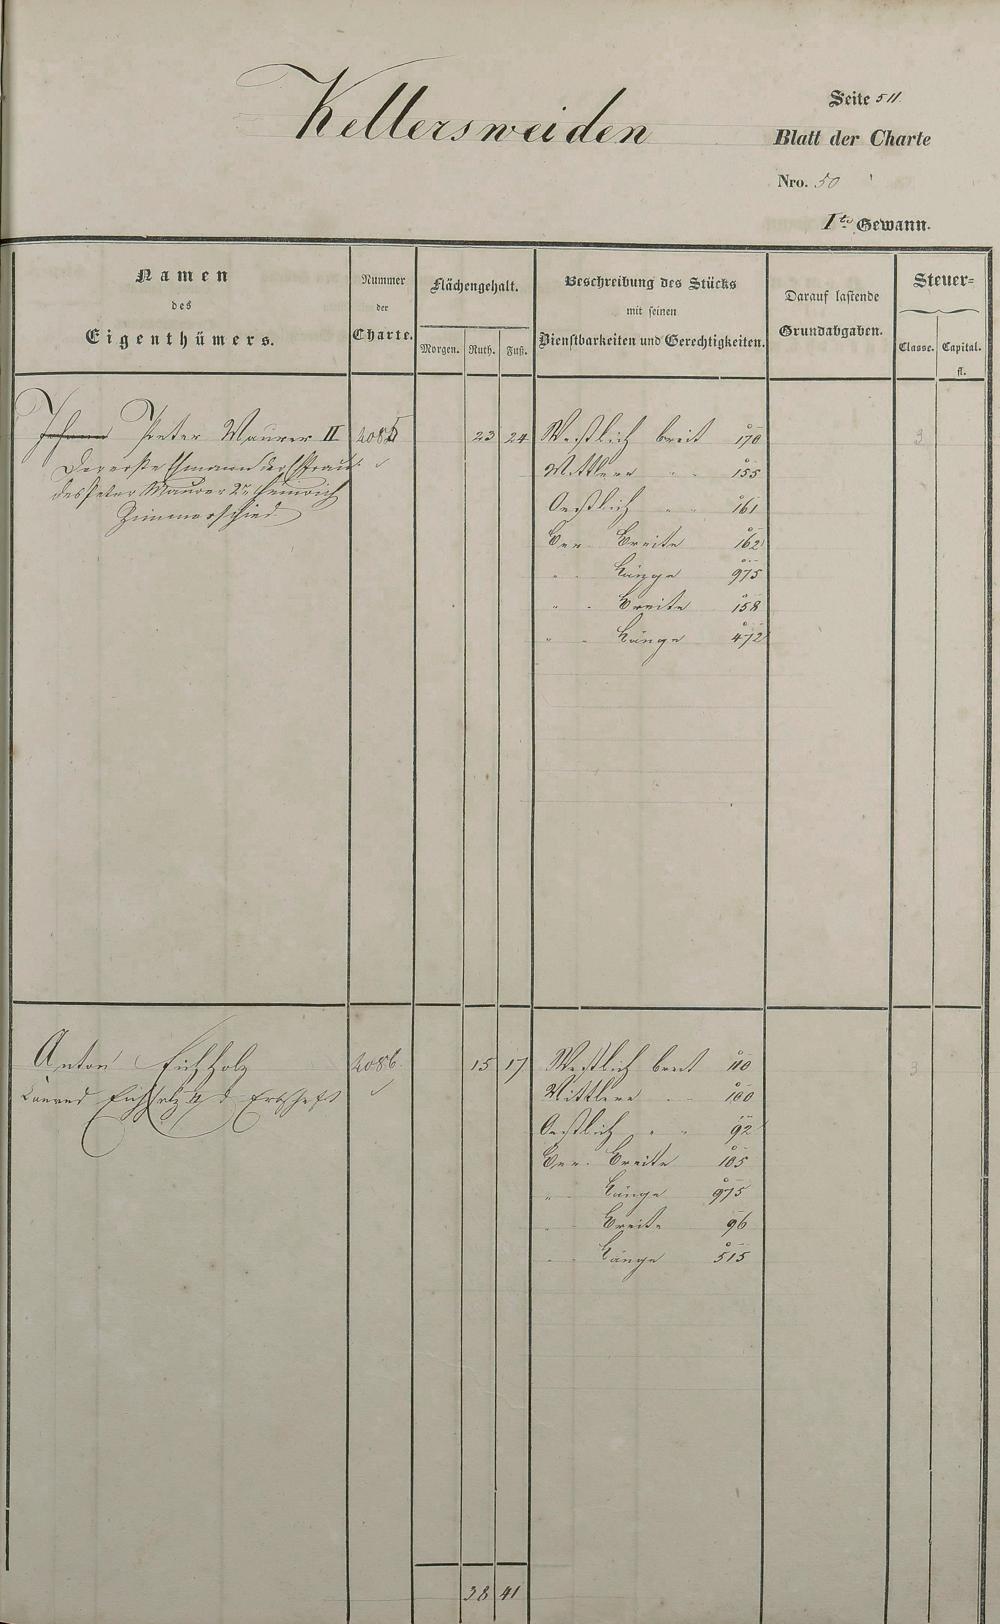 Kellersweiden
Seite 511.
Blatt der Charte
Nro. 50
1te Gewann.
Namen
des
Eigenthümers.
Nummer
der
Charte.
Flächengehalt.
Morgen. Ruth. Fuß.
Beschreibung des Stücks
mit seinen
Dienstbarkeiten und Gerechtigkeiten.
Darauf lastende
Grundabgaben.
Steuer=
Classe. Capital.
fl.
Johann Peter Maurer II 2085 23 24 Westlich breit 170 3
Der erste Ehmann der Ehfrau Mittlere " " 155
des Peter Maurer 2r Heinrich Oestlich " " 161
Zimmerschied
Ber. Breite 162
" " Länge 975
" " Breite 158
" " Länge 472
Anton Eichholz 2086 15 17 Westlich breit 110 3
Conrad Eichholz Erbschaft Mittlere " " 100
Oestlich " " 92
Ber. Breite 105
" Länge 975
" Breite 96
" " Länge 515
38 41